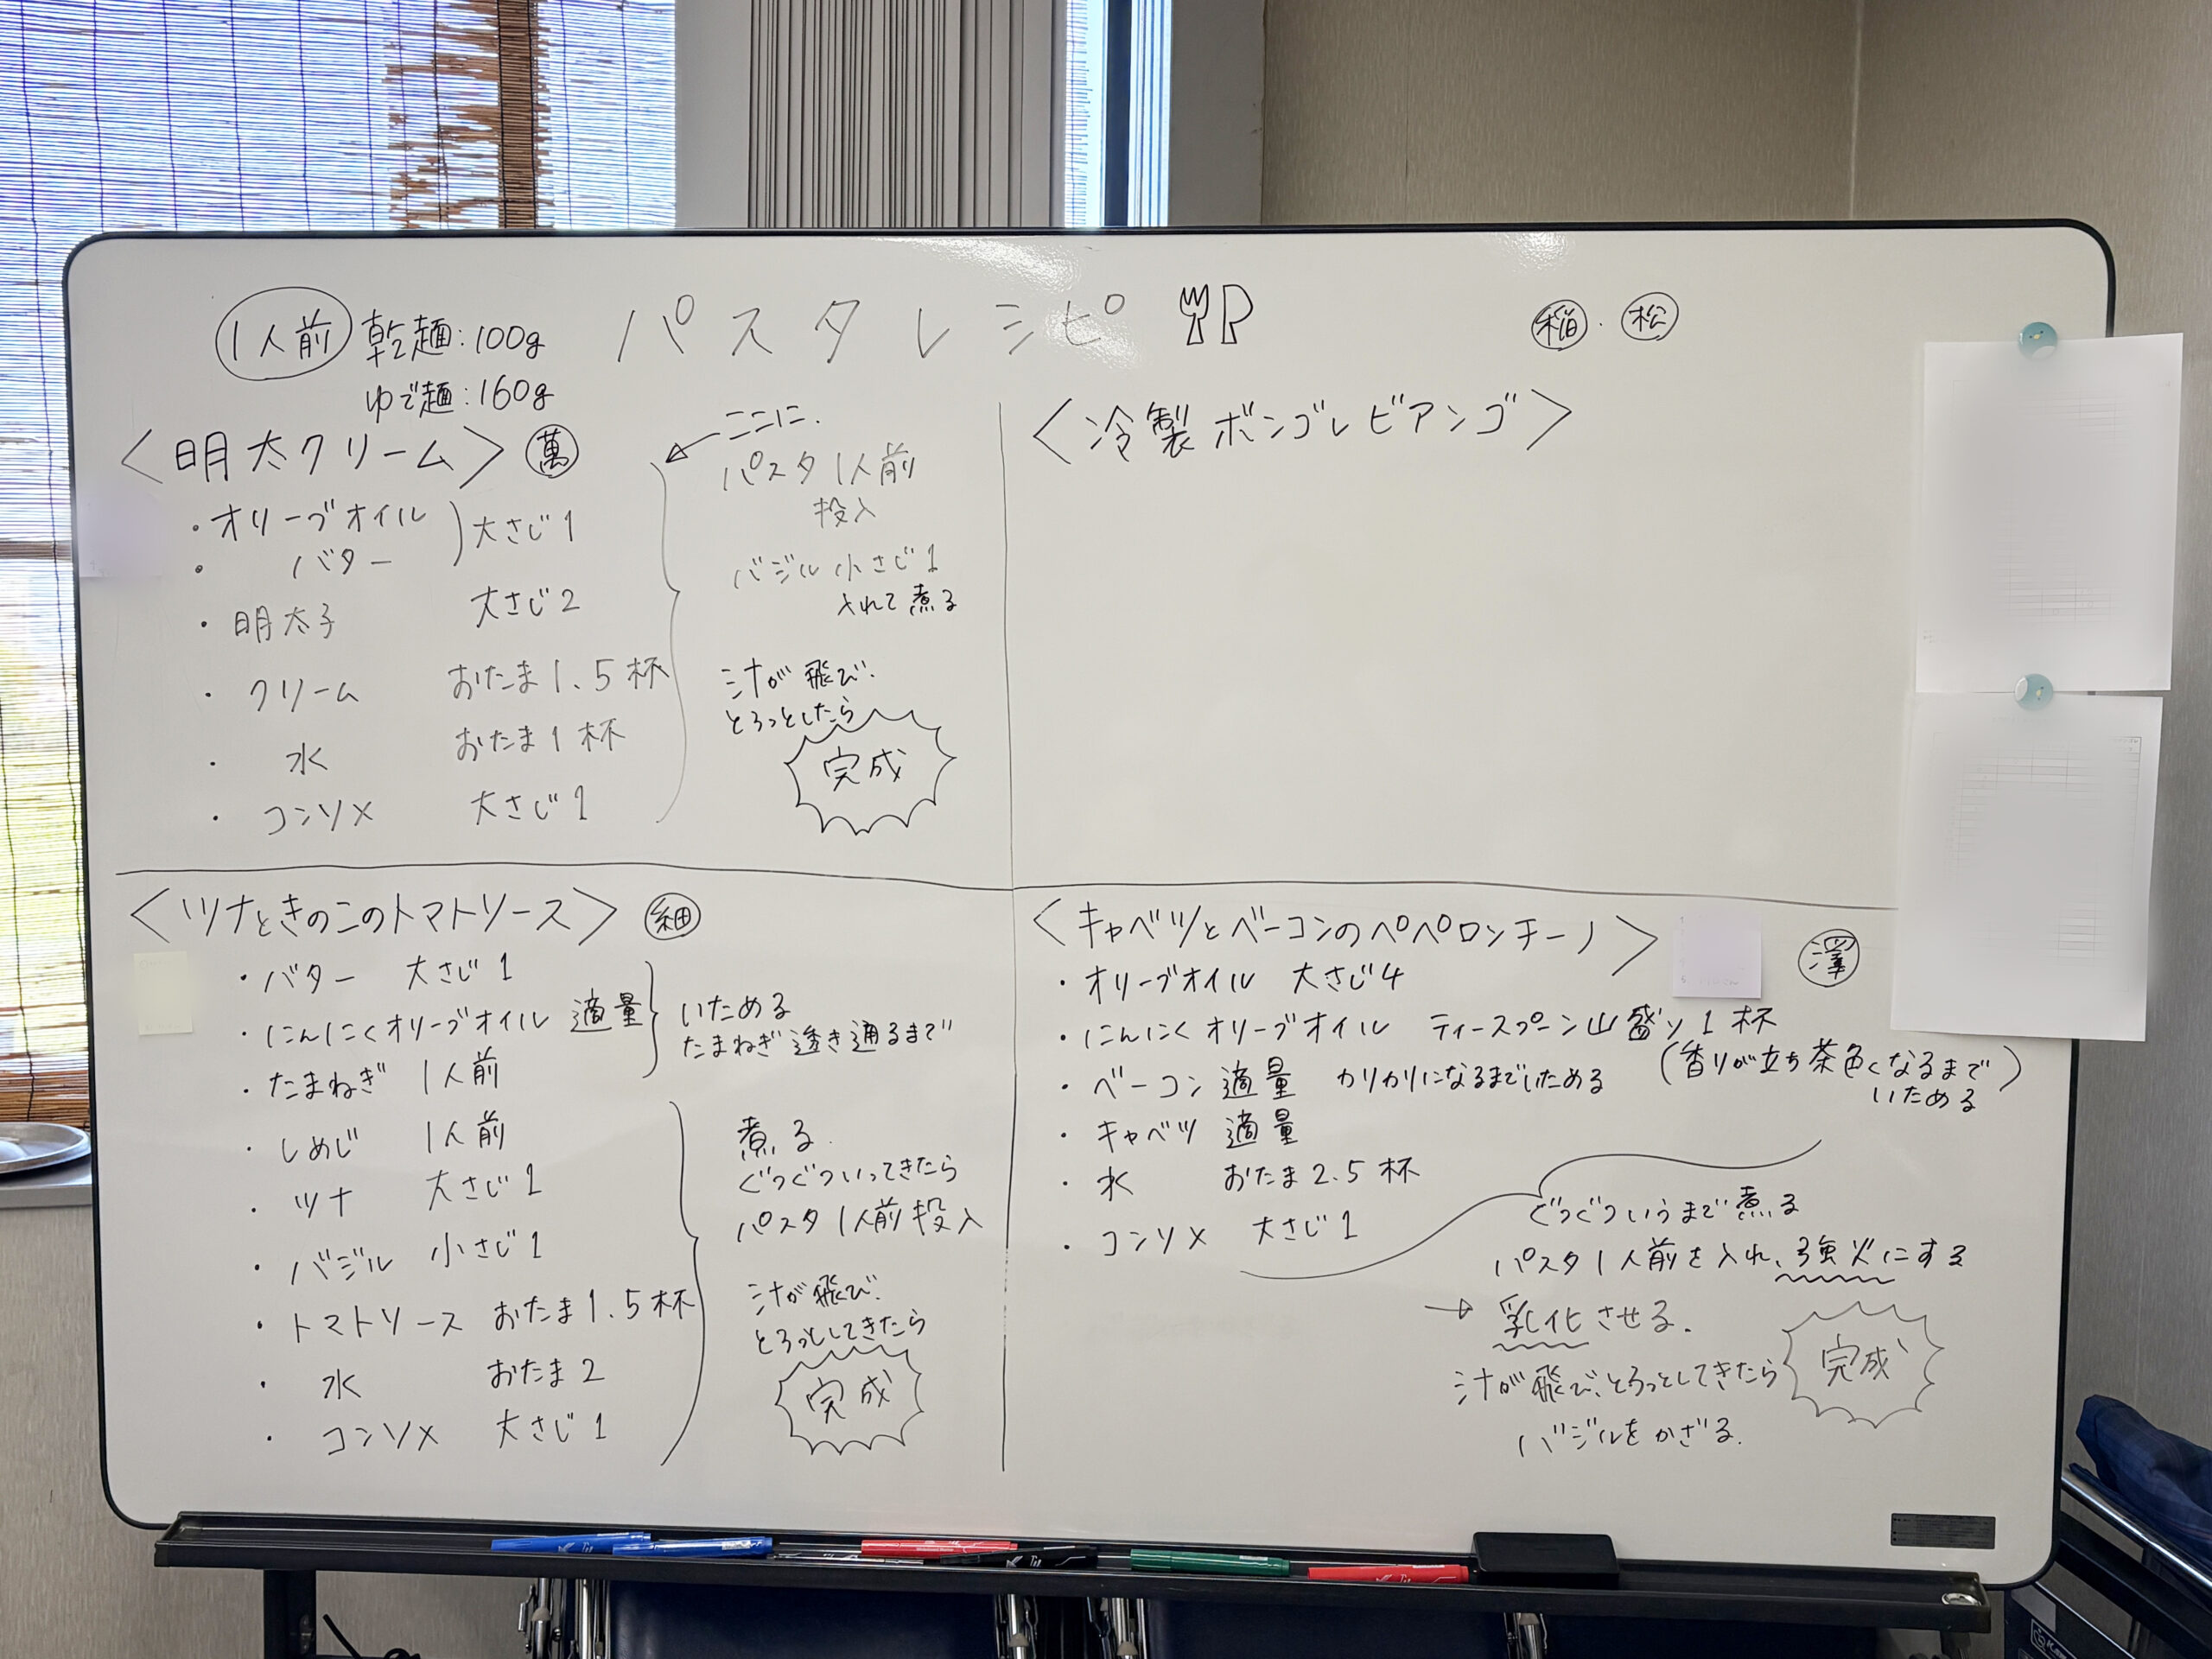 1人前 乾麺:100g
ゆで麺:160g
パスタレシピ
稲・松
<明太クリーム> 萬
・オリーブオイル
・バター
大さじ1
・明太子 大さじ2
・クリーム おたま1.5杯
・水 おたま1杯
・コンソメ 大さじ1
ここに.
パスタ1人前
投入
バジル小さじ1
入れて煮る
汁が飛び、
とろっとしたら
完成
<冷製ボンゴレビアンゴ>
<ツナときのこのトマトソース> 細
・バター 大さじ1
・にんにくオリーブオイル 適量
・たまねぎ 1人前
いためる
たまねぎ透き通るまで
・しめじ 1人前
・ツナ 大さじ1
・バジル 小さじ1
・トマトソース おたま1.5杯
・水 おたま2
・コンソメ 大さじ1
煮る.
ぐつぐついってきたら
パスタ1人前投入
汁が飛び、
とろっとしてきたら
完成
<キャベツとベーコンのペペロンチーノ> 澤
・オリーブオイル 大さじ4
・にんにくオリーブオイル ティースプーン山盛り1杯
(香りが立ち茶色くなるまで
いためる)
・ベーコン 適量 カリカリになるまでいためる
・キャベツ 適量
・水 おたま2.5杯
・コンソメ 大さじ1
ぐつぐついうまで煮る
パスタ1人前を入れ、強火にする
→ 乳化させる.
汁が飛び、とろっとしてきたら
バジルをかざる.
完成